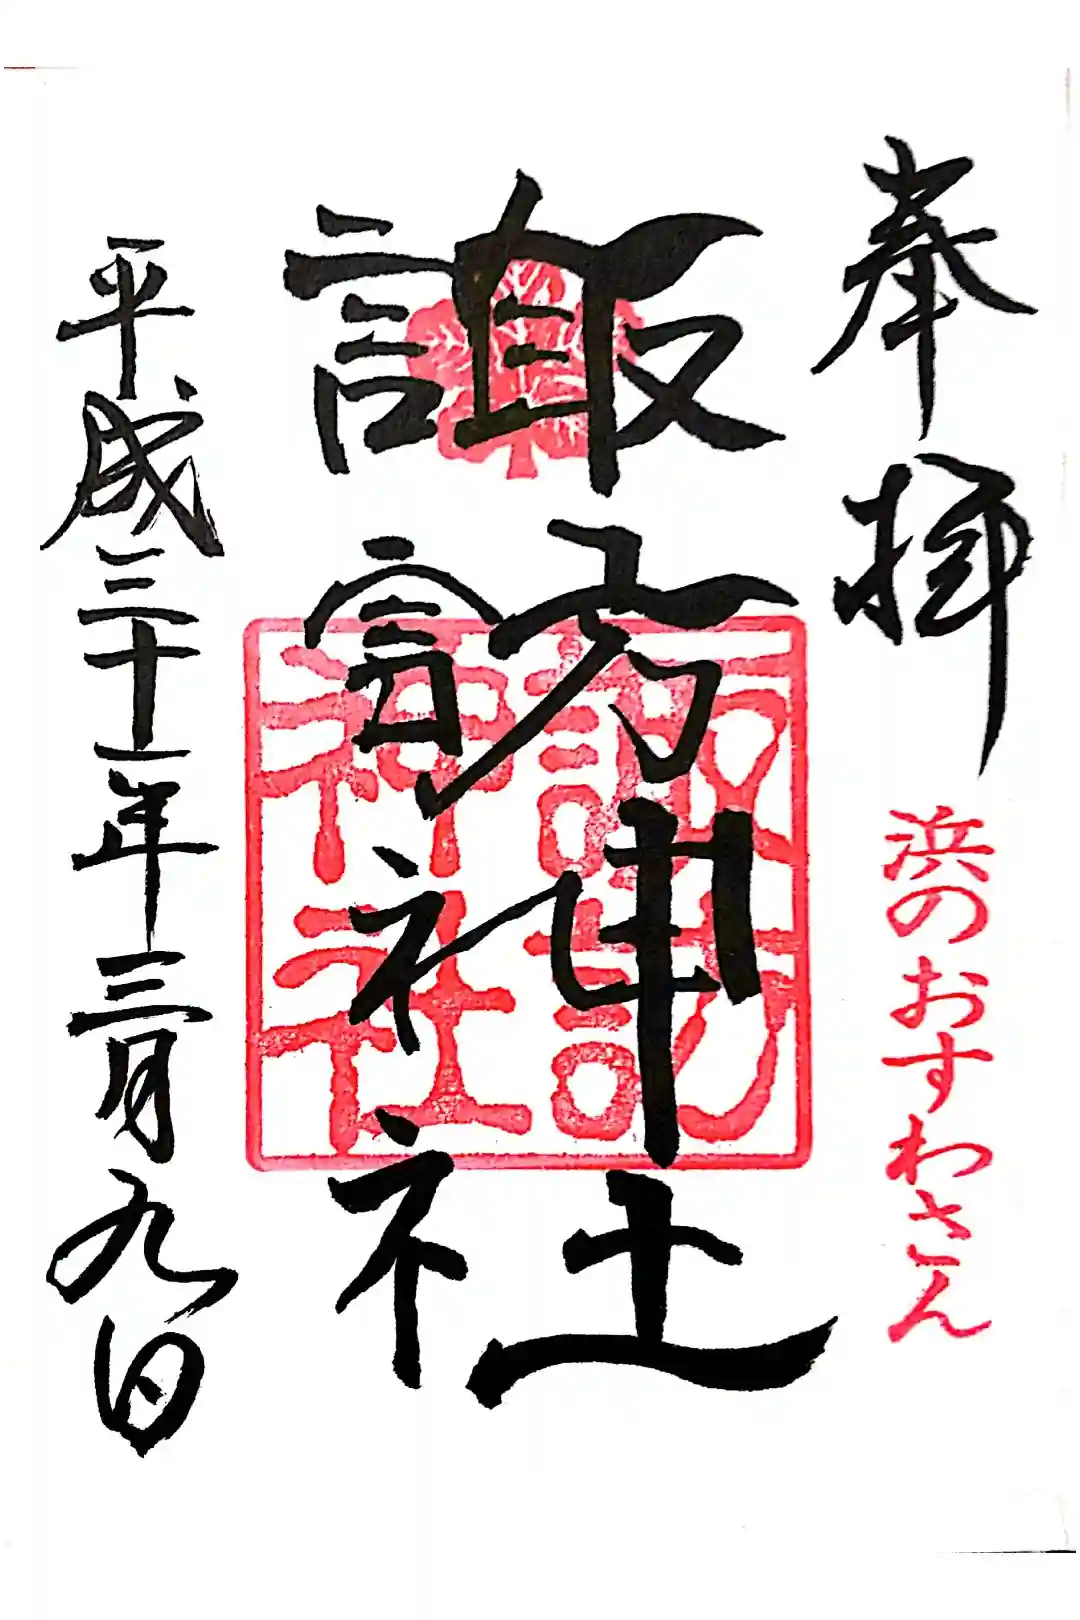 奉拝
浜のおすわさん
諏訪神社
諏訪
神社
平成三十一年三月九日